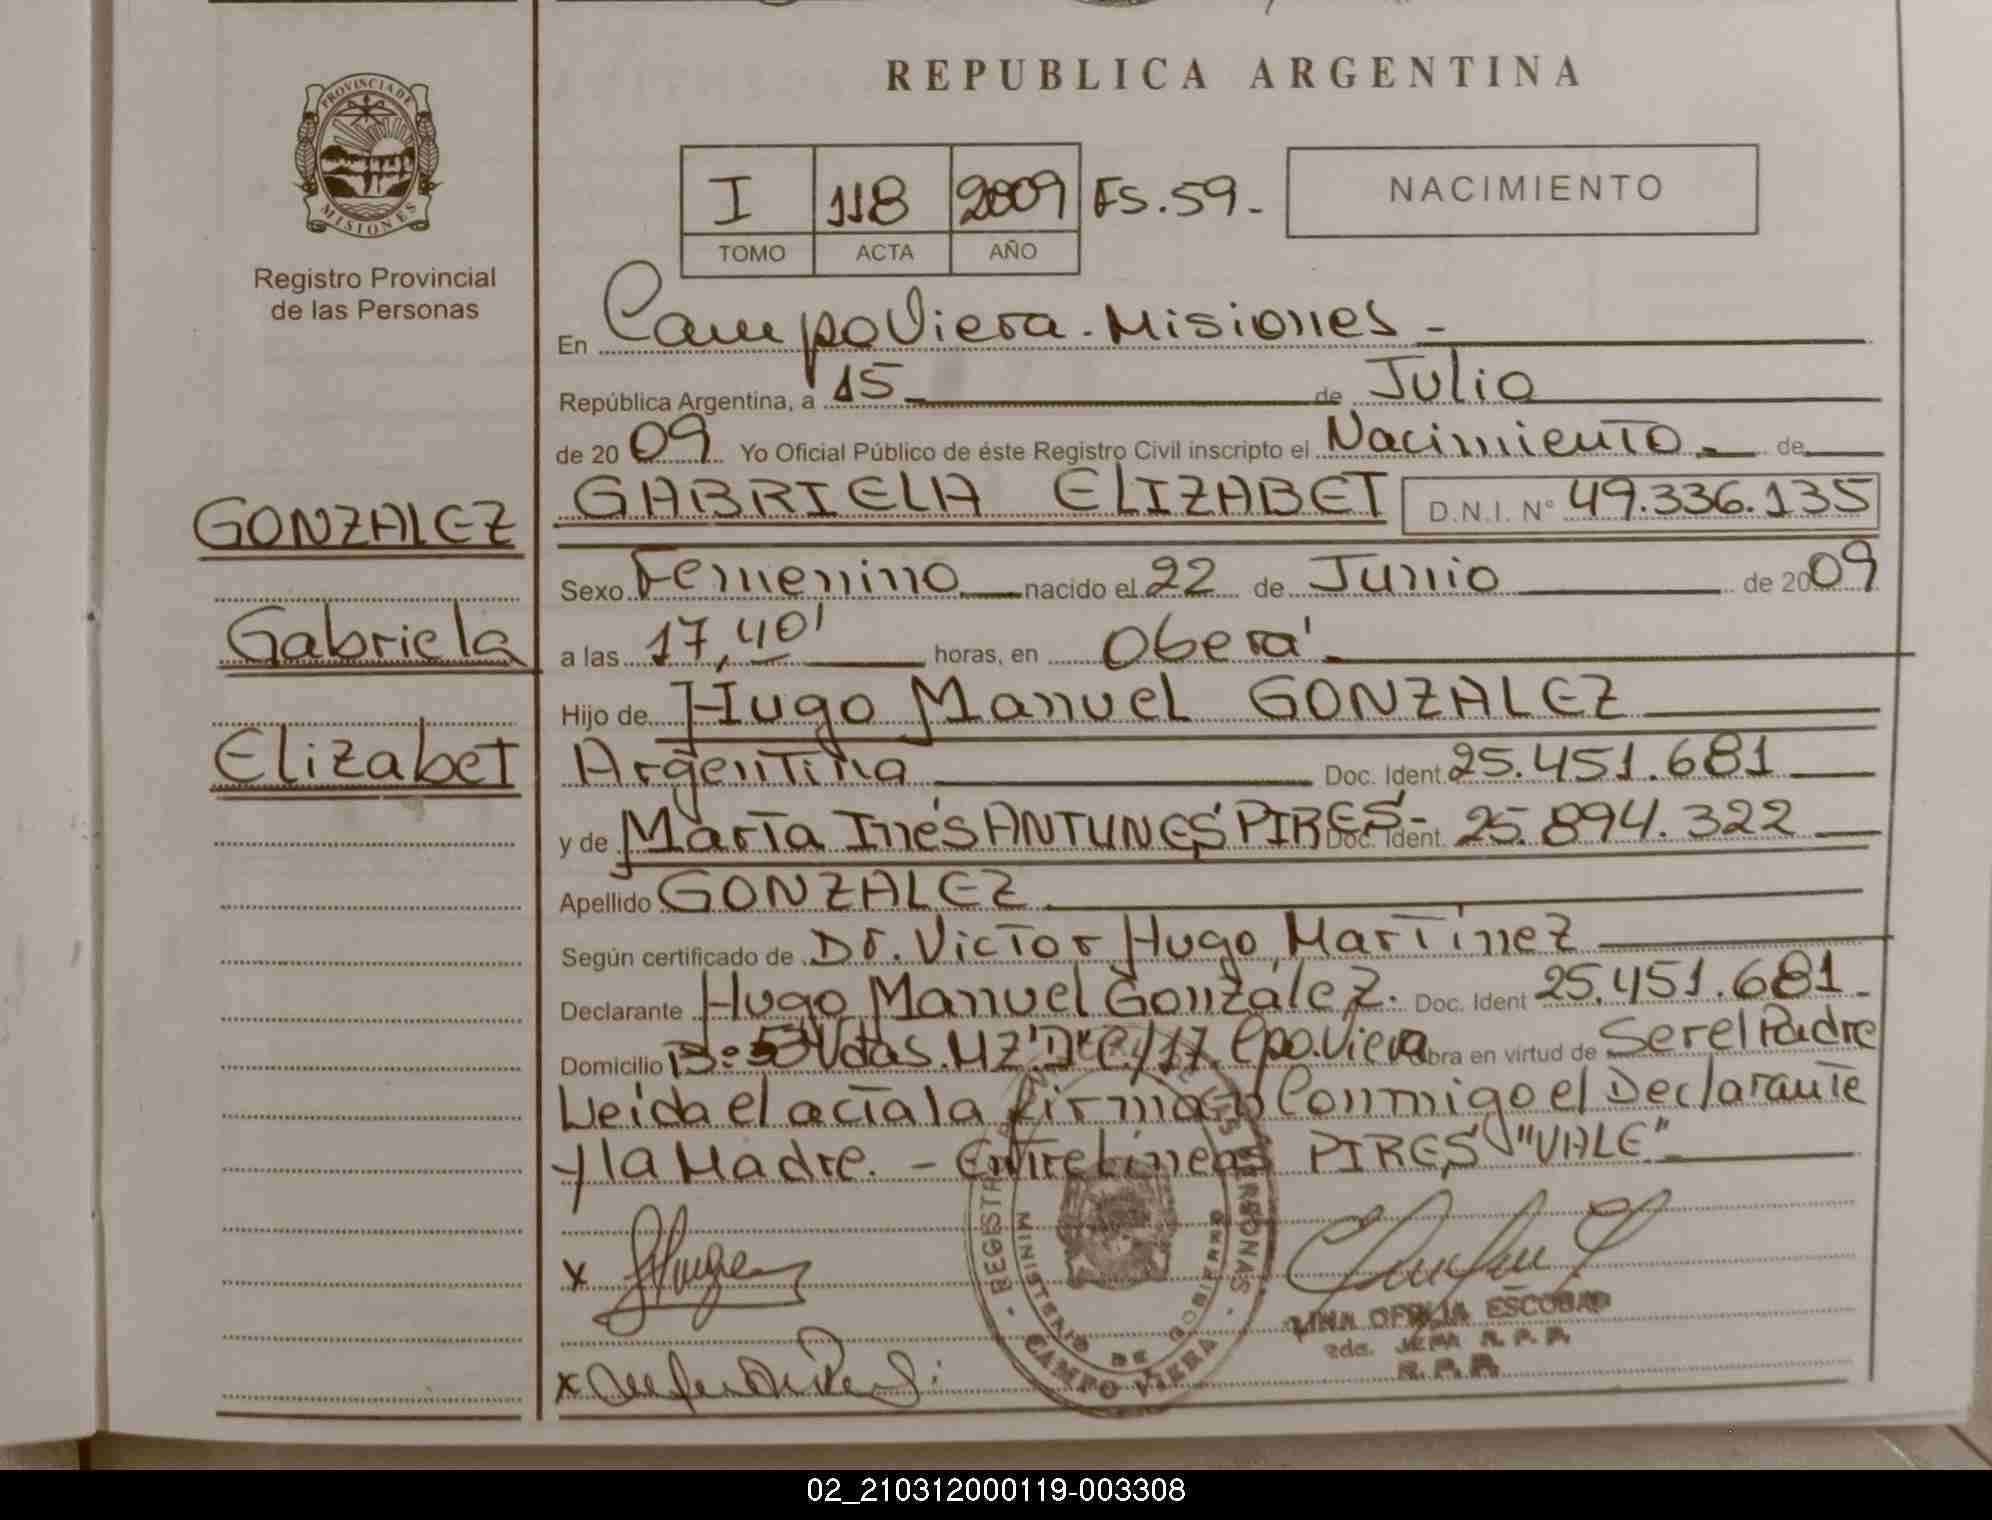 REPUBLICA ARGENTINA
PROVINCIA DE
MISIONES
Registro Provincial
de las Personas
I 118 2009 FS.59.-
TOMO ACTA AÑO
NACIMIENTO
En Campo Viera - Misiones -
República Argentina, a 15 de Julio
de 2009 Yo Oficial Público de éste Registro Civil inscripto el Nacimiento de
GONZALEZ
Gabriela
Elizabet
GABRIELA ELIZABET D.N.I. N° 49.336.135
Sexo Femenino nacido el 22 de Junio de 2009
a las 17,40' horas, en Oberá
Hijo de Hugo Manuel GONZALEZ
Argentina Doc. Ident. 25.451.681
y de María Inés ANTUNES PIRES- Doc. Ident. 25.894.322
Apellido GONZALEZ
Según certificado de Dr. Victor Hugo Martínez
Declarante Hugo Manuel González. Doc. Ident 25.451.681
Domicilio B: 54 Vdas. MZ"D" C/17 Cpo. Viera obra en virtud de Ser el Padre
Leída el acta la firma Conmigo el Declarante
y la Madre. - Entre Líneas PIRES "VALE"
x
x
CAMPO VIERA
MINISTERIO DE GOBIERNO
LINA OFELIA ESCOBAR
2da. JEFA R.P.P.
R.P.P.
02_210312000119-003308